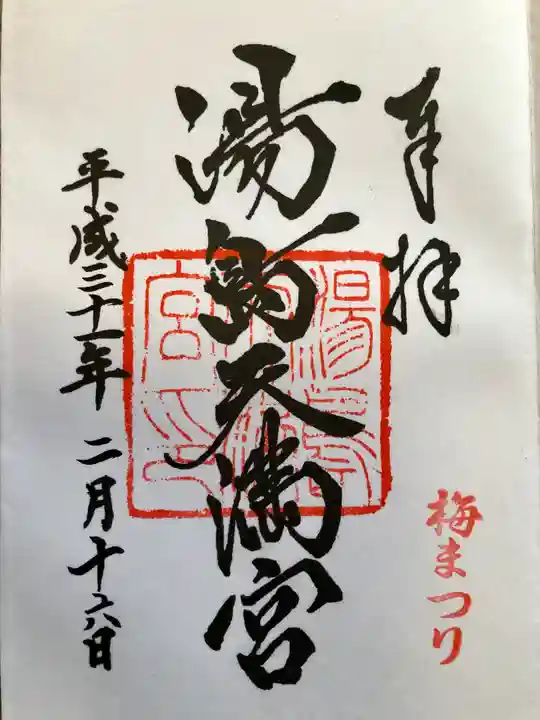 奉拝
梅まつり
湯島天満宮
平成三十一年 二月十六日